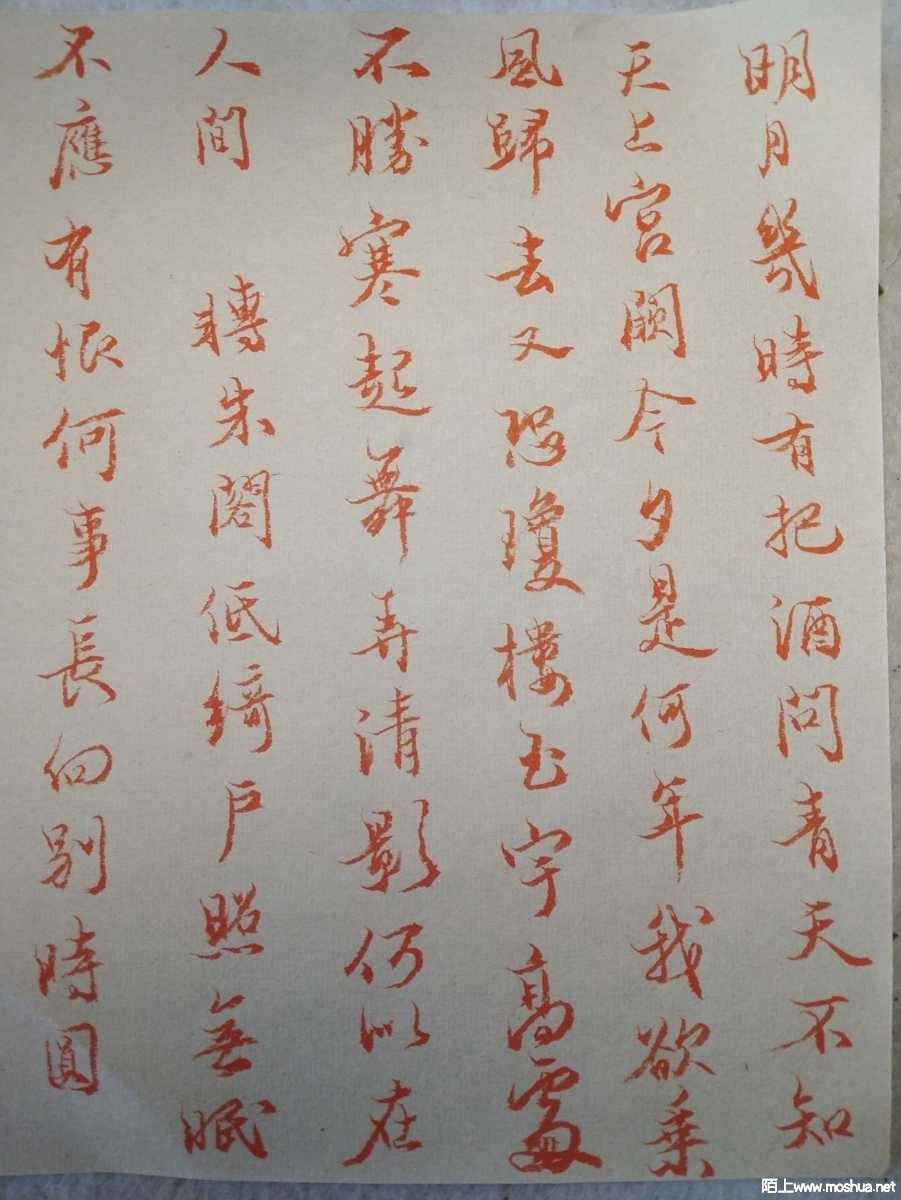 明月幾時有把酒問青天不知
天上宮闕今夕是何年我欲乗
風歸去又恐瓊樓玉宇高處
不勝寒起舞弄清影何似在
人間 轉朱閣低綺戶照無眠
不應有恨何事長向別時圓
陌上www.moshua.net